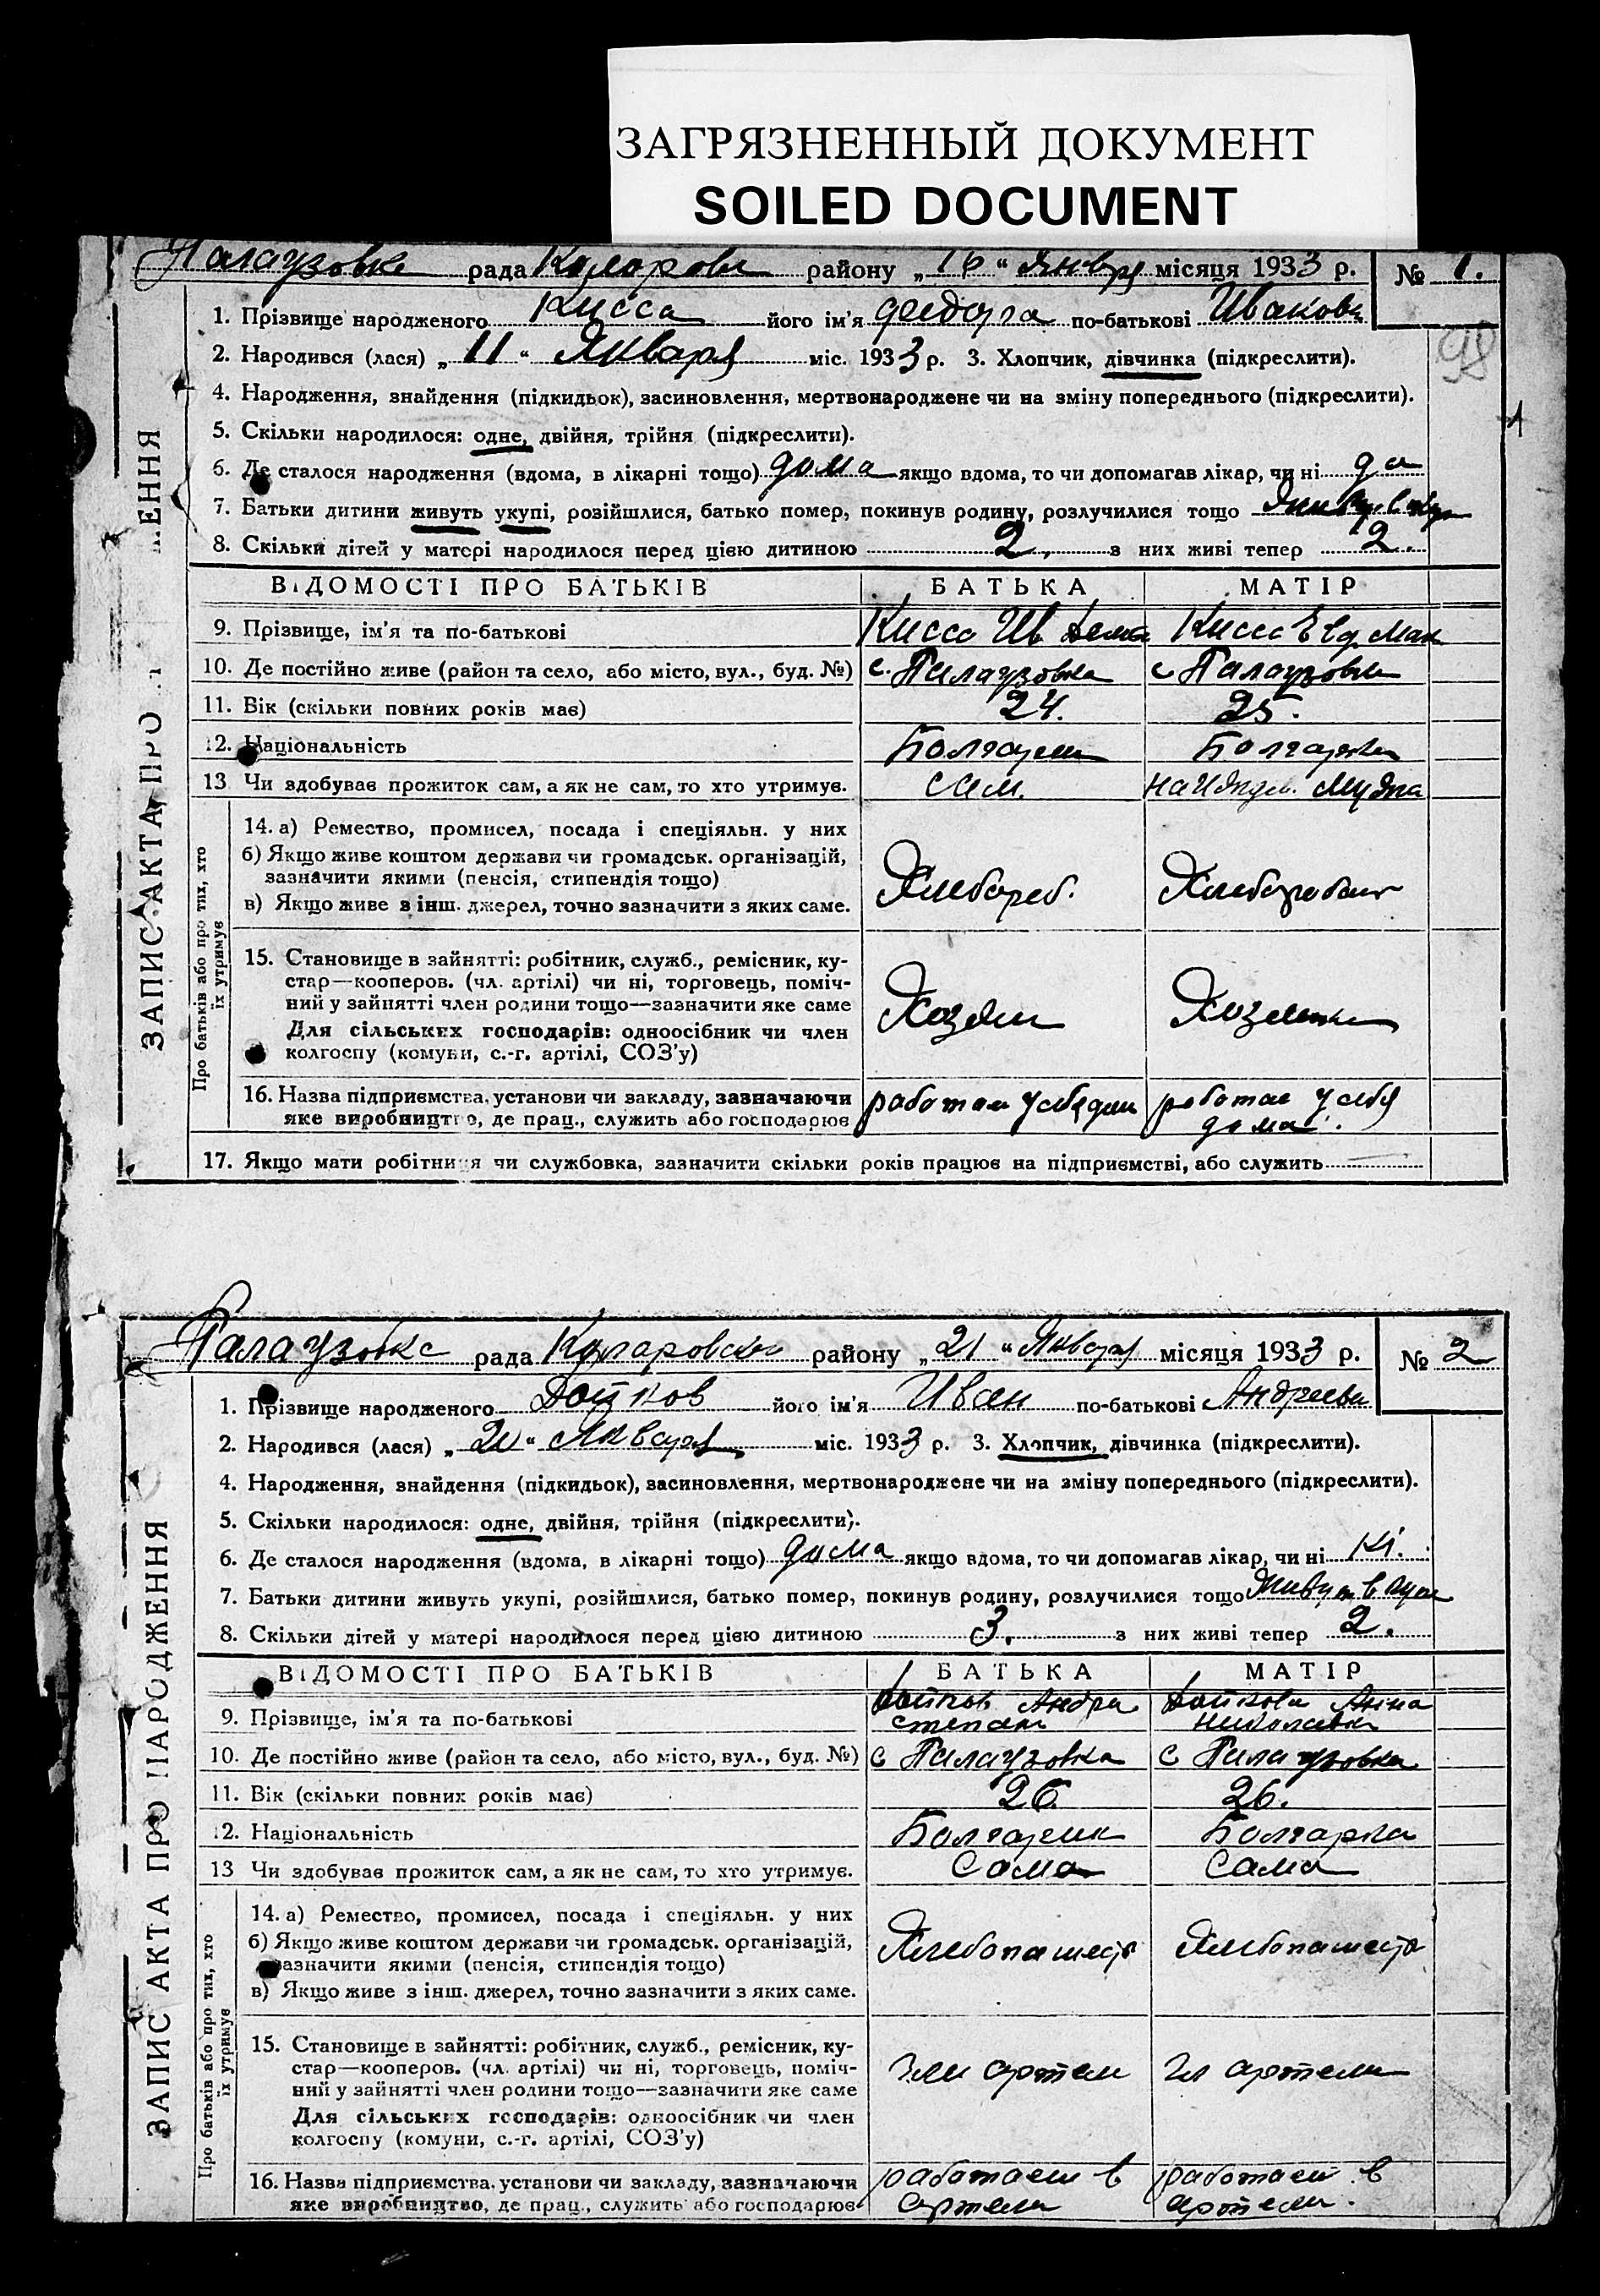 ЗАГРЯЗНЕННЫЙ ДОКУМЕНТ
SOILED DOCUMENT
Палаузовка рада района „16“ Январ місяця 1933 р. № 1.
98
1. Прізвище народженого Кисса його ім'я по-батькові Ивановн
2. Народився (лася) „11“ Января міс. 1933 р. 3. Хлопчик, дівчинка (підкреслити).
4. Народження, знайдення (підкидьок), засиновлення, мертвонароджене чи на зміну попереднього (підкреслити).
1
5. Скільки народилося: одне, двійня, трійня (підкреслити).
6. Де сталося народження (вдома, в лікарні тощо) дома якщо вдома, то чи допомагав лікар, чи ні да
7. Батьки дитини живуть укупі, розійшлися, батько помер, покинув родину, розлучилися тощо
8. Скільки дітей у матері народилося перед цією дитиною 2. з них живі тепер 2.
ВІДОМОСТІ ПРО БАТЬКІВ БАТЬКА МАТІР
9. Прізвище, ім'я та по-батькові Кисса Ив Кисса Евд Мак
10. Де постійно живе (район та село, або місто, вул., буд. №) с. Палаузовка с Палаузовка
11. Вік (скільки повних років має) 24. 25.
12. Національність Болгарин Болгарка
13 Чи здобував прожиток сам, а як не сам, то хто утримує. сам. на иждив. мужа
14. а) Ремество, промисел, посада і спеціяльн. у них
б) Якщо живе коштом держави чи громадськ. організацій,
зазначити якими (пенсія, стипендія тощо)
Хлебороб.
в) Якщо живе з інш. джерел, точно зазначити з яких саме.
15. Становище в зайнятті: робітник, служб., ремісник, ку-
стар—кооперов. (чл. артілі) чи ні, торговець, поміч-
ний у зайнятті член родини тощо—зазначити яке саме
Хозяин Хозяйка
Для сільських господарів: одноосібник чи член
колгоспу (комуни, с.-г. артілі, СОЗ'у)
16. Назва підприємства, установи чи закладу, зазначаючи
яке виробництво, де прац., служить або господарює
работает у себя дом работает у себя
дома.
17. Якщо мати робітниця чи службовка, зазначити скільки років працює на підприємстві, або служить
ЗАПИС АКТА ПРО
Про батьків або про тих, хто
їх утримує
Палаузовка рада Коларовски району „21“ Января місяця 1933 р. № 2
1. Прізвище народженого Дойков його ім'я Иван по-батькові Андреевич
2. Народився (лася) „20“ Января міс. 1933 р. 3. Хлопчик, дівчинка (підкреслити).
4. Народження, знайдення (підкидьок), засиновлення, мертвонароджене чи на зміну попереднього (підкреслити).
5. Скільки народилося: одне, двійня, трійня (підкреслити).
6. Де сталося народження (вдома, в лікарні тощо) дома якщо вдома, то чи допомагав лікар, чи ні ні.
7. Батьки дитини живуть укупі, розійшлися, батько помер, покинув родину, розлучилися тощо Живут
8. Скільки дітей у матері народилося перед цією дитиною 3. з них живі тепер 2.
ВІДОМОСТІ ПРО БАТЬКІВ БАТЬКА МАТІР
Дойков Андре Дойкова Анна
9. Прізвище, ім'я та по-батькові Степан Николаевн
10. Де постійно живе (район та село, або місто, вул., буд. №) с Палаузовка с Палаузовка
11. Вік (скільки повних років має) 26. 26.
12. Національність Болгарин Болгарка
13 Чи здобував прожиток сам, а як не сам, то хто утримує. Сама Сама
14. а) Ремество, промисел, посада і спеціяльн. у них
б) Якщо живе коштом держави чи громадськ. організацій,
зазначити якими (пенсія, стипендія тощо)
Хлебопашест Хлебопашест
в) Якщо живе з інш. джерел, точно зазначити з яких саме.
15. Становище в зайнятті: робітник, служб., ремісник, ку-
стар—кооперов. (чл. артілі) чи ні, торговець, поміч-
ний у зайнятті член родини тощо—зазначити яке саме
артели артели
Для сільських господарів: одноосібник чи член
колгоспу (комуни, с.-г. артілі, СОЗ'у)
16. Назва підприємства, установи чи закладу, зазначаючи
яке виробництво, де прац., служить або господарює
работает в работает в
артели артели.
ЗАПИС АКТА ПРО НАРОДЖЕННЯ
Про батьків або про тих, хто
їх утримує